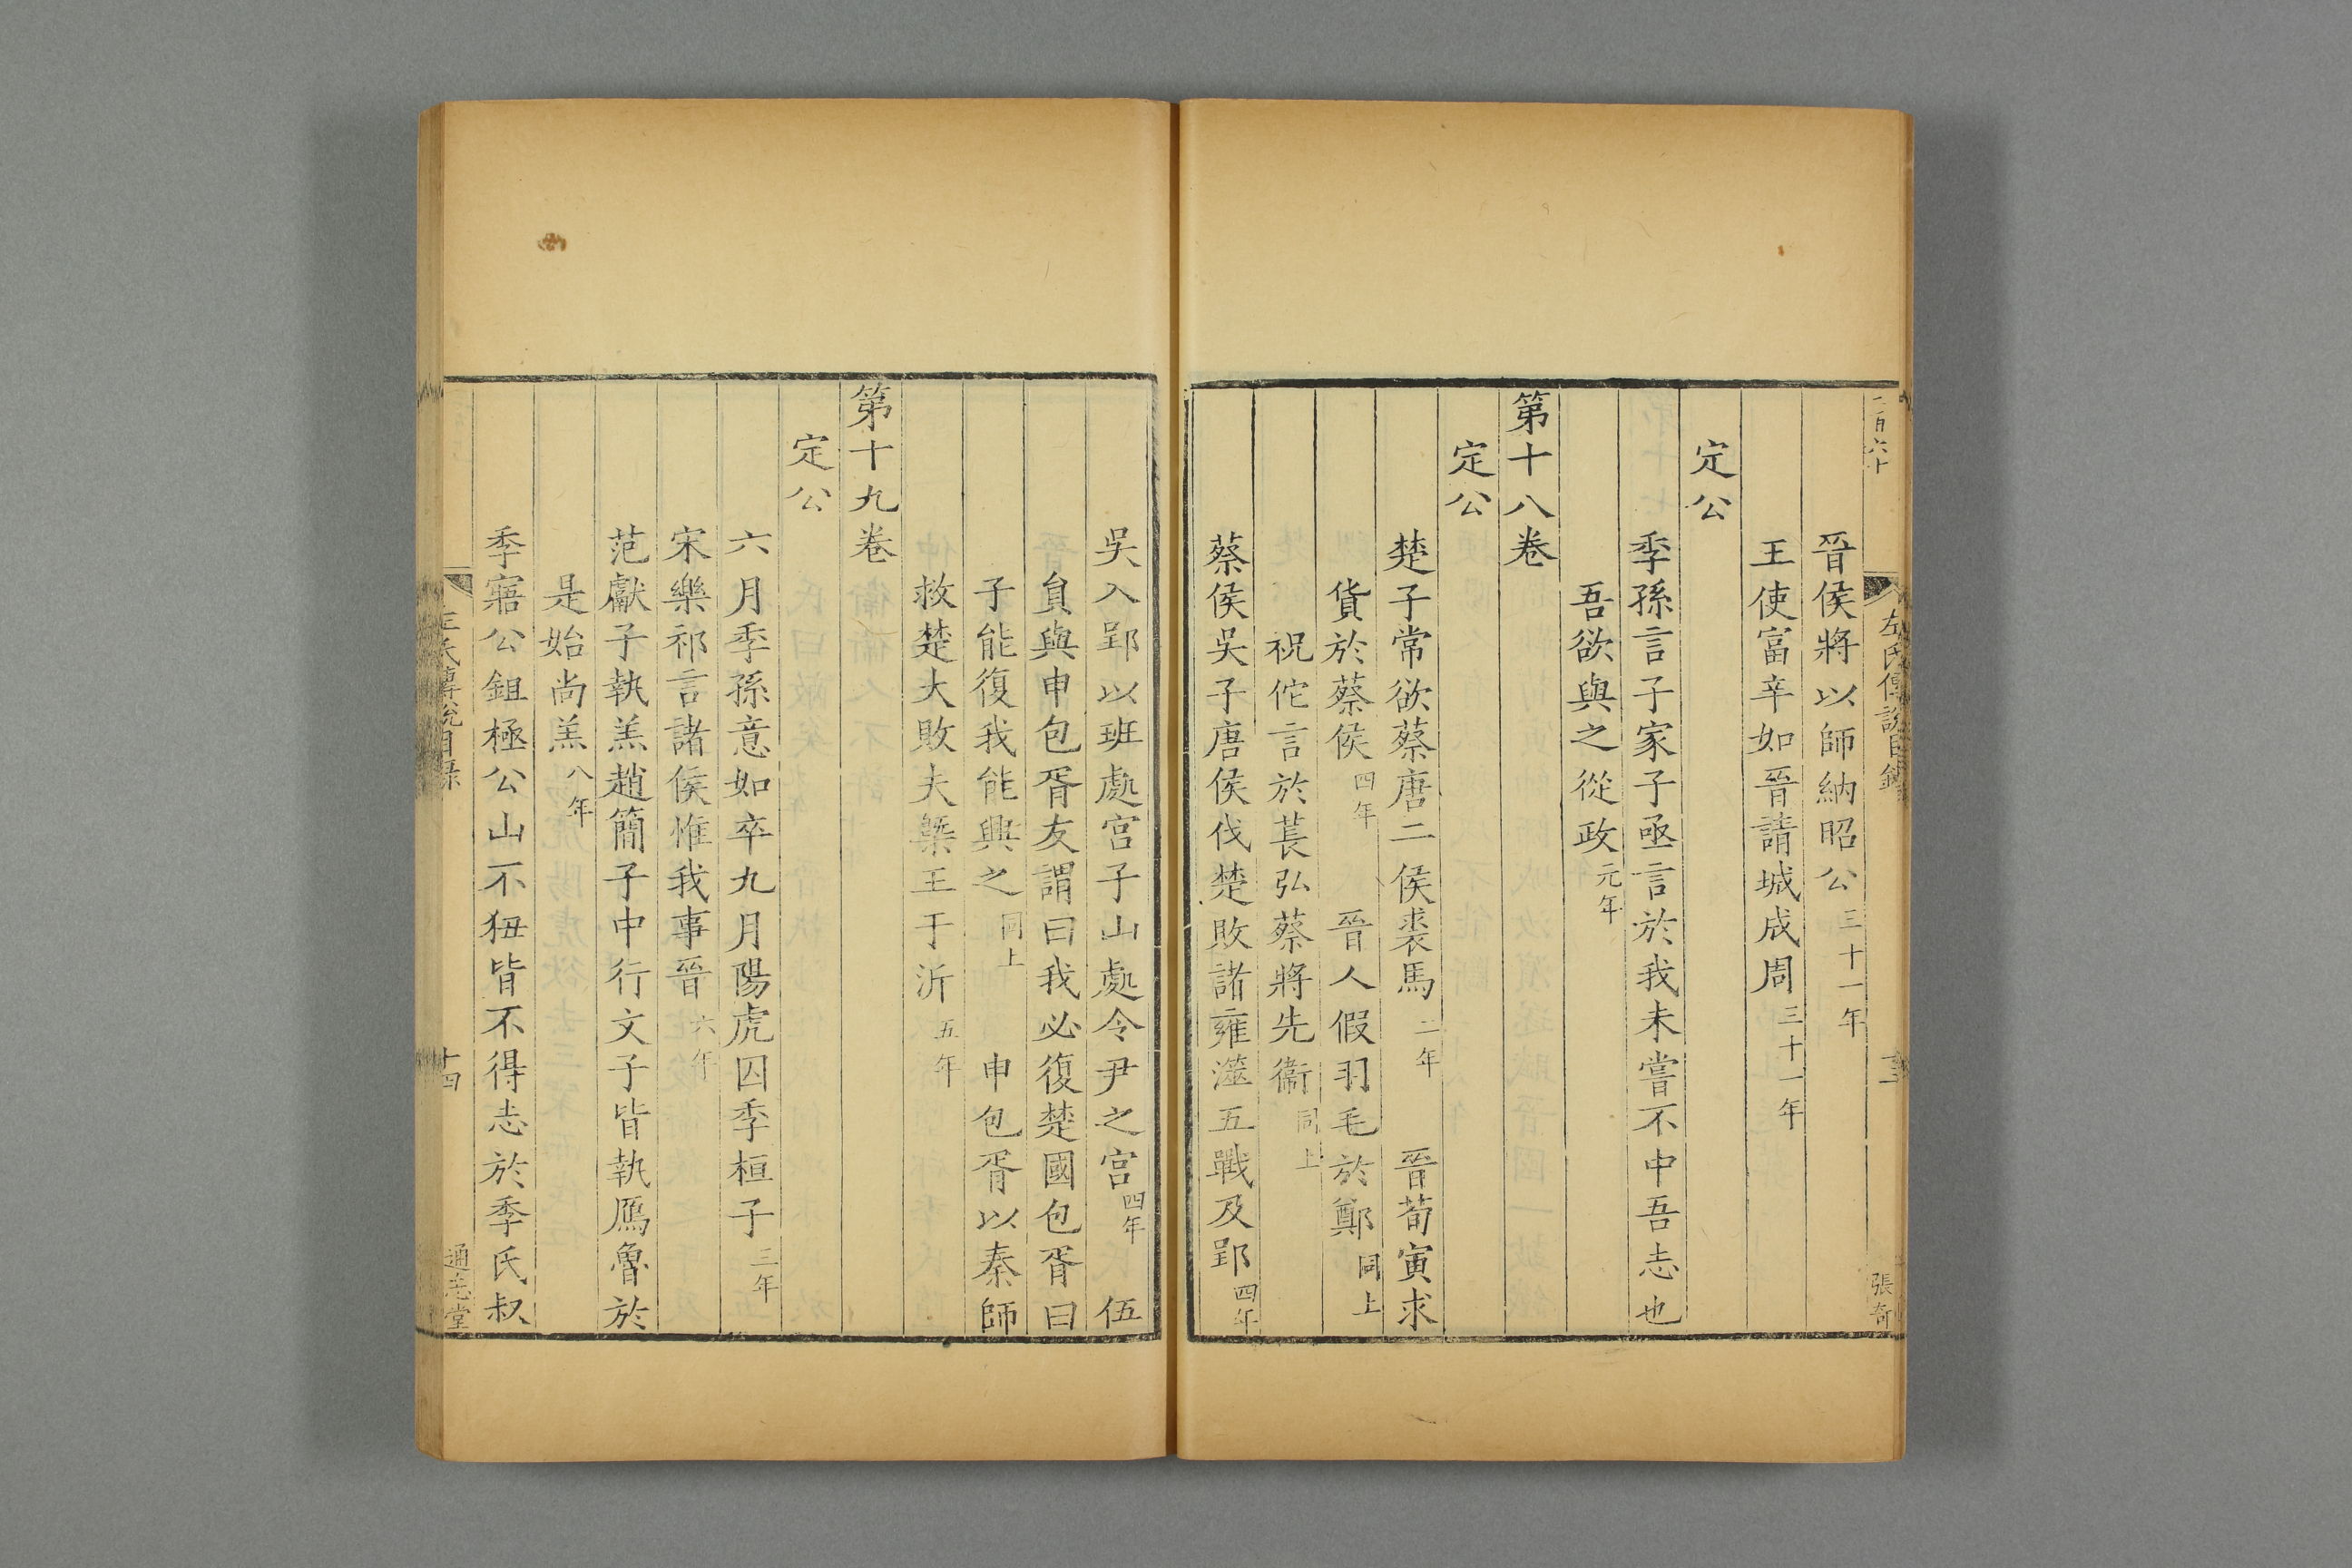 晉侯將以師納昭公三十一年
王使富辛如晉請城成周三十一年
定公
季孫言子家子亟言於我未嘗不中吾志也
吾欲與之從政元年
第十八卷
定公
楚子常欲蔡唐二侯裘馬二年 晉荀寅求
貨於蔡侯四年 晉人假羽毛於鄭同上
祝佗言於萇弘蔡將先衞同上
蔡侯吳子唐侯伐楚敗諸雍澨五戰及郢四年
張奇
吳入郢以班處宮子山處令尹之宮四年 伍
員與申包胥友謂曰我必復楚國包胥曰
子能復我能興之同上 申包胥以秦師
救楚大敗夫槩王于沂五年
第十九卷
定公
六月季孫意如卒九月陽虎囚季桓子三年
宋樂祁言諸侯惟我事晉六年
范獻子執羔趙簡子中行文子皆執鴈魯於
是始尚羔八年
季寤公鉏極公山不狃皆不得志於季氏叔
左氏傳說目錄
十四
通志堂